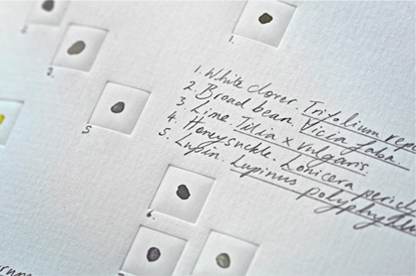 1. White clover. Trifolium repe
2. Broad bean. Vicia faba.
3. Lime. Tilia x vulgaris.
4. Honeysuckle. Lonicera pericl
5. Lupin. Lupinus polyphyllu
1.
2.
5
6.
7